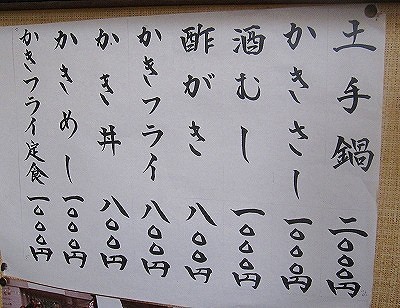 土手鍋 二〇〇〇円
かきさし 一〇〇〇円
酒むし 一〇〇〇円
酢がき 八〇〇円
かきフライ 八〇〇円
かき丼 八〇〇円
かきめし 一〇〇〇円
かきフライ定食 一〇〇〇円